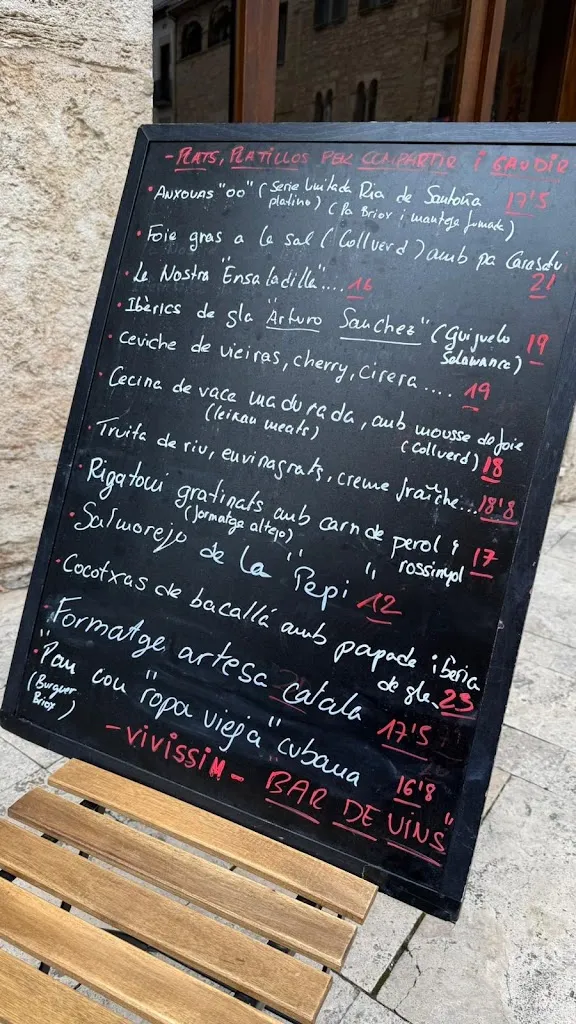 - PLATS, PLATILLOS PER COMPARTIR i GAUDIR
• ANXOVAS "OO" (Serie Limitada Ria de Santoña 17'5
platino) (Pa Briox i mantega fumada)
• Foie gras a la sal (Collverd) amb pa Carasatu
21
• La Nostra "Ensaladilla".... 16
• Ibèrics de gla "Arturo Sanchez" (Guijuelo 19
Salamanca)
• Ceviche de vieiras, cherry, Cirera .... 19
• Cecina de vaca madurada, amb mousse de foie
(leixan meats) (Collverd) 18
• Truita de riu, envinagrats, creme fraîche... 18'8
• Rigatoni gratinats amb carn de perol i 17
(formatge altejo) rossinyol
• Salmorejo de la "Pepi" 12
• Cocotxas de bacallà amb papada ibèrica
de gla. 23
• Formatge artesa català 17'5
• "Pan con "ropa vieja" cubana 16'8
(Burguer
Briox)
- VIVISSIM - "BAR DE VINS"